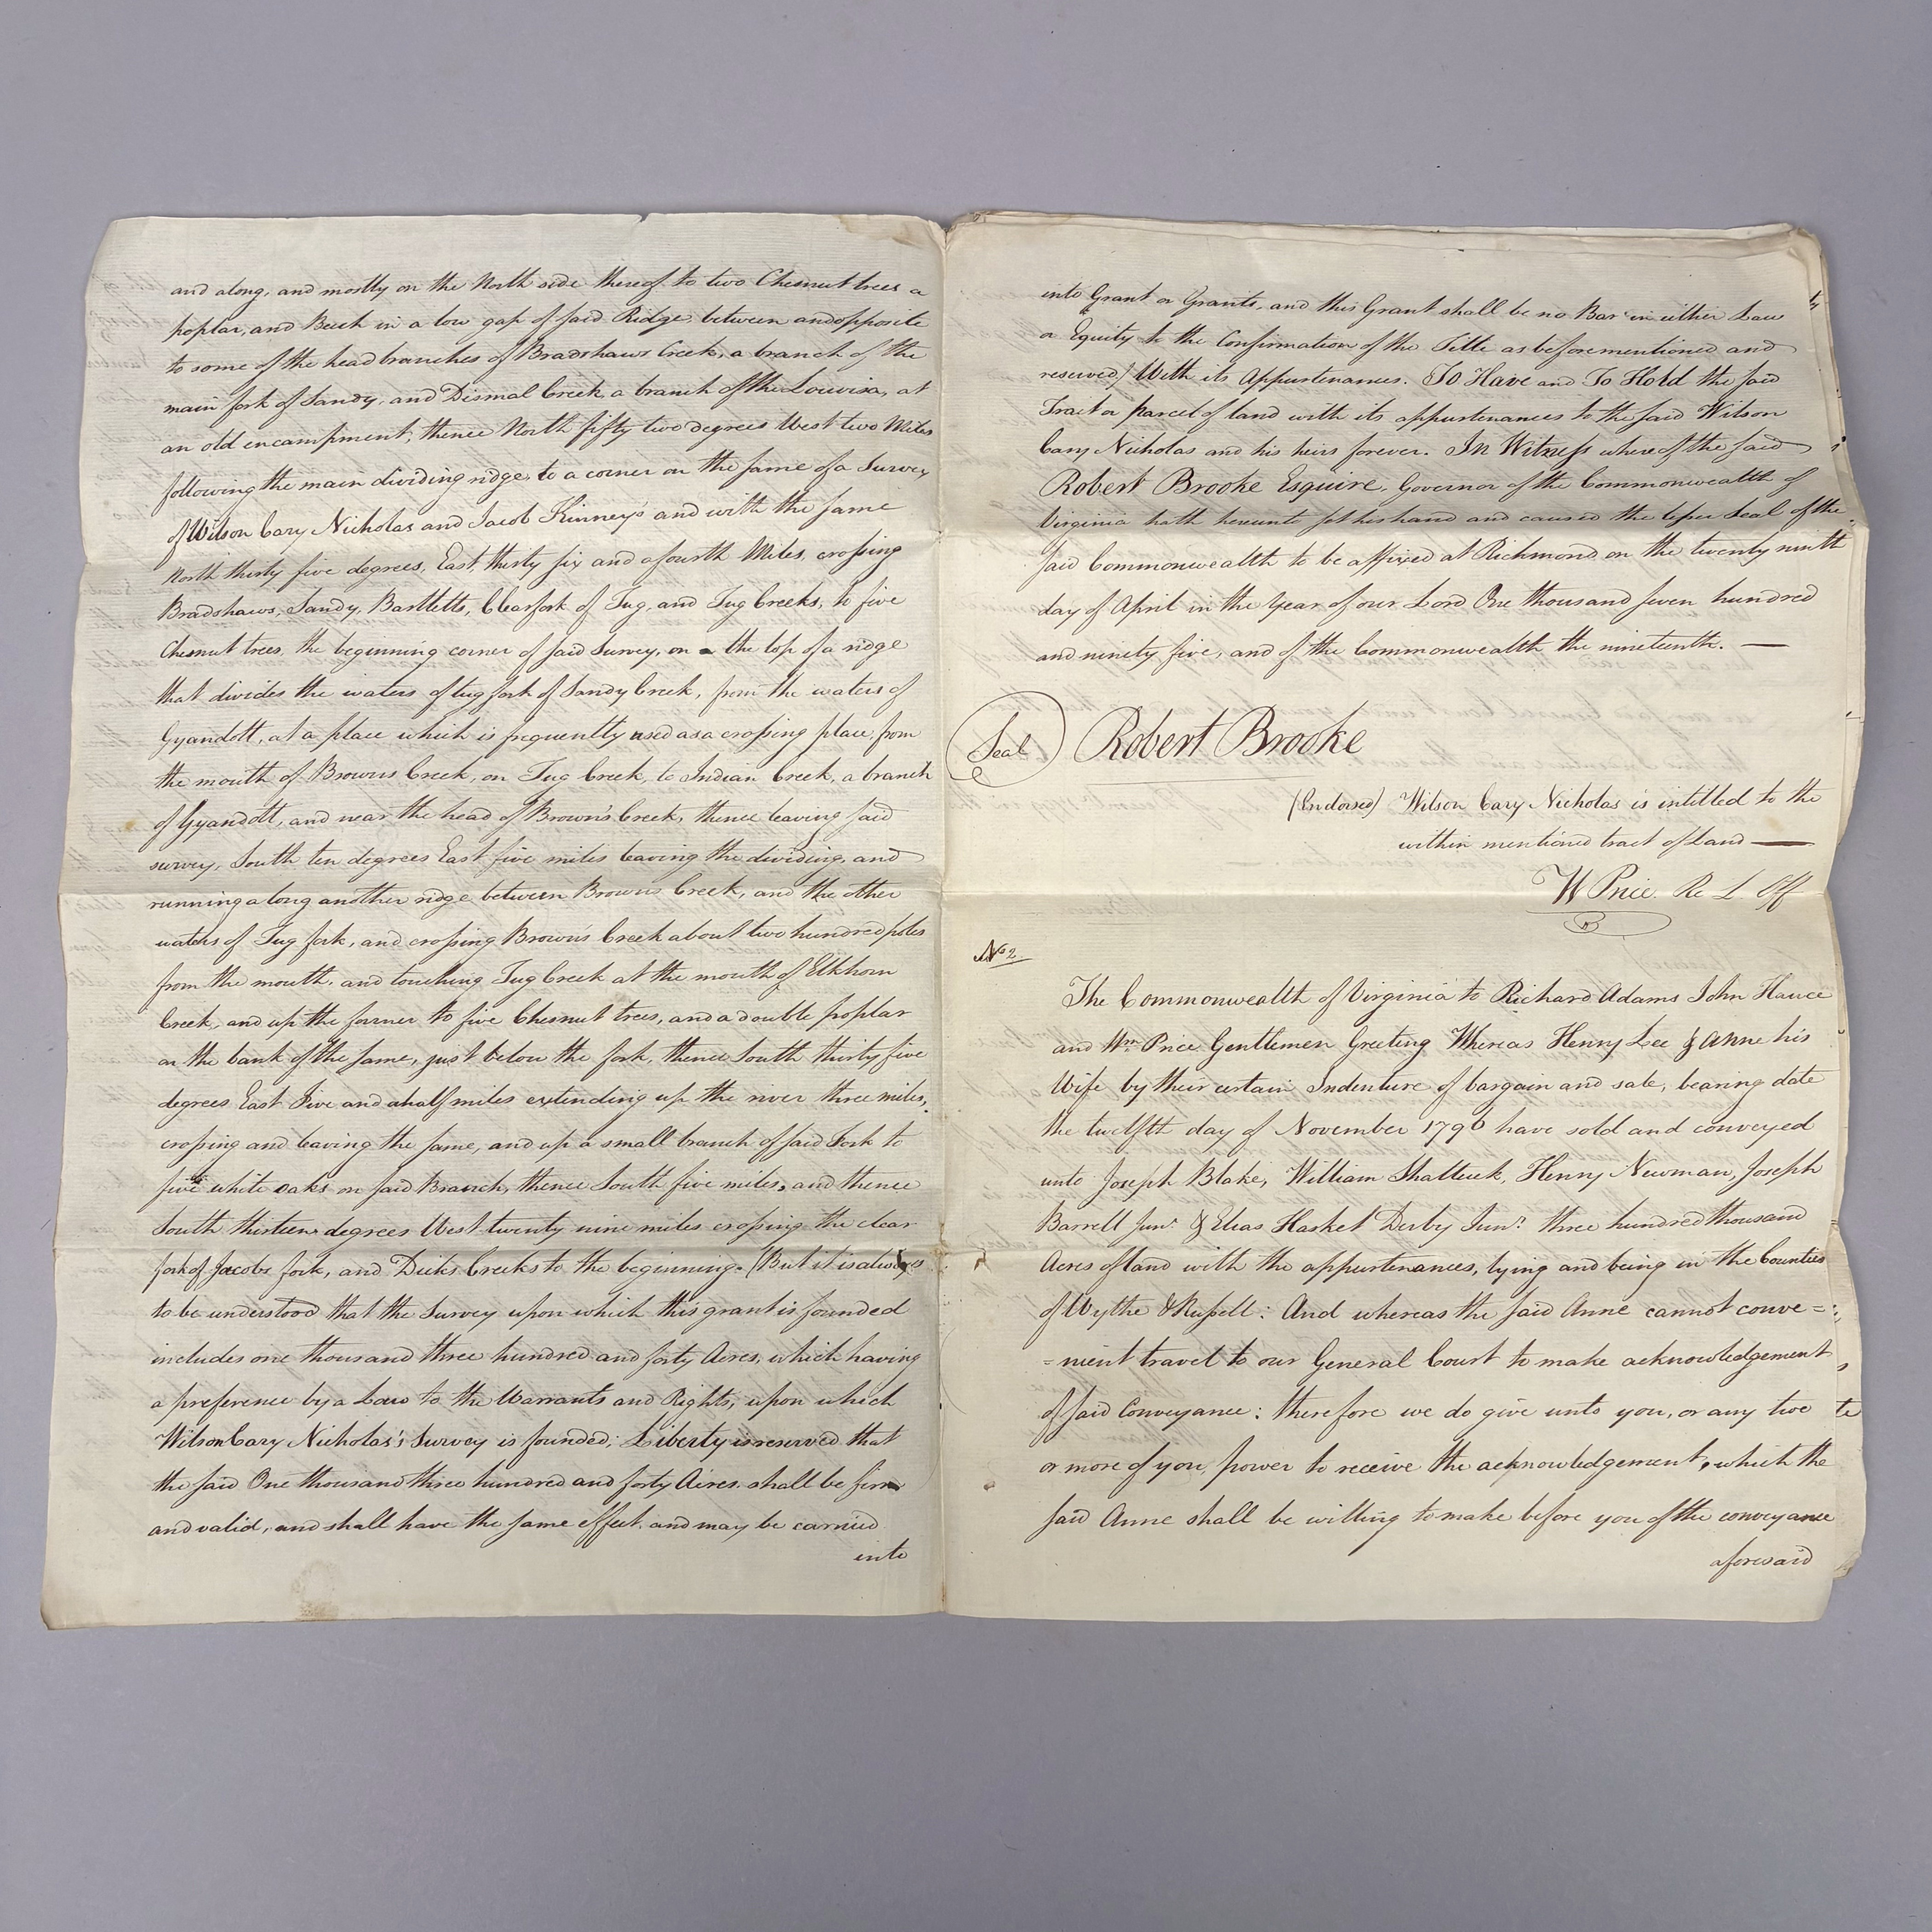 and along, and mostly on the North side thereof to two Chesnut trees a
poplar, and Beech in a low gap of said Ridge between and opposite
to some of the head branches of Bradshaws Creek, a branch of the
main fork of Sandy, and Dismal Creek, a branch of the Louvisa, at
an old encampment; thence North fifty two degrees West two Miles
following the main dividing ridge to a corner on the same of a Survey
of Wilson Cary Nicholas and Jacob Kinney's and with the same
North thirty five degrees, East, thirty six and a fourth Miles, crossing
Bradshaws, Sandy, Bartletts, Clearfork of Tug, and Tug Creeks, to five
Chesnut trees, the beginning corner of said Survey, on the top of a ridge
that divides the waters of tug fork of Sandy Creek, from the waters of
Gyandott, at a place which is frequently used as a crossing place, from
the mouth of Browns Creek, on Tug Creek, to Indian Creek, a branch
of Gyandott, and near the head of Brown's Creek, thence leaving said
survey, South ten degrees East five miles leaving the dividing, and
running along another ridge between Browns Creek, and the other
waters of Tug fork, and crossing Brown's Creek about two hundred poles
from the mouth, and touching Tug Creek at the mouth of Elkhorn
Creek, and up the former to five Chesnut trees, and a double poplar
on the bank of the same, just below the fork, thence South thirty five
degrees East Five and a half miles extending up the river three miles,
crossing and leaving the same, and up a small branch of said Fork to
five white oaks on said Branch, thence South five miles, and thence
South thirteen degrees West twenty nine miles crossing the clear
fork of Jacobs fork, and Dicks Creeks to the beginning. (But it is always
to be understood that the Survey upon which this grant is founded
includes one thousand three hundred and forty Acres, which having
a preference by a Law to the Warrants and Rights, upon which
Wilson Cary Nicholas's Survey is founded; Liberty is reserved that
the said One thousand three hundred and forty Acres shall be firm
and valid, and shall have the same effect, and may be carried
into
into Grant or Grants, and this Grant shall be no Bar in either Law
or Equity to the Confirmation of the Title as beforementioned and
reserved) With its Appurtenances. To Have and To Hold the said
Tract or parcel of land with its appurtenances to the said Wilson
Cary Nicholas and his heirs forever. In Witness whereof the said
Robert Brooke Esquire, Governor of the Commonwealth of
Virginia hath hereunto set his hand and caused the lesser Seal of the
said Commonwealth to be affixed at Richmond on the twenty ninth
day of April in the Year of our Lord One thousand seven hundred
and ninety five, and of the Commonwealth the nineteenth. —
Seal Robert Brooke
(Endorsed) Wilson Cary Nicholas is intitled to the
within mentioned tract of Land —
W Price. Re L. Off
No 2
The Commonwealth of Virginia to Richard Adams John Hauce
and Wm Price Gentlemen Greeting Whereas Henry Lee & Anne his
Wife by their certain Indenture of bargain and sale, bearing date
the twelfth day of November 1796 have sold and conveyed
unto Joseph Blake, William Shattuck, Henry Newman, Joseph
Barrell Junr. & Elias Hasket Derby Junr. three hundred thousand
Acres of land with the appurtenances, lying and being in the Counties
of Wythe & Russell: And whereas the said Anne cannot conve=
=nient travel to our General Court to make acknowledgement
of said Conveyance: therefore we do give unto you, or any two
or more of you, power to receive the acknowledgement, which the
said Anne shall be willing to make before you of the conveyance
aforesaid